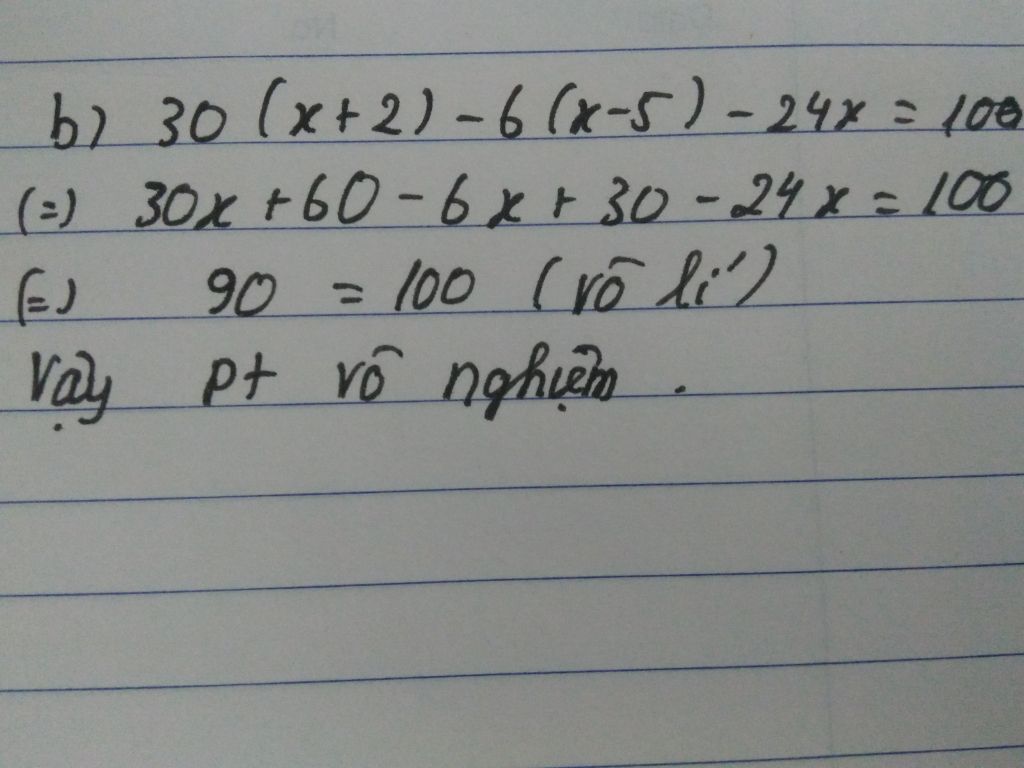 b) 30 (x+2) - 6 (x-5) - 24x = 100
(=) 30x + 60 - 6x + 30 - 24x = 100
(=) 90 = 100 (vô lí)
Vậy pt vô nghiệm.